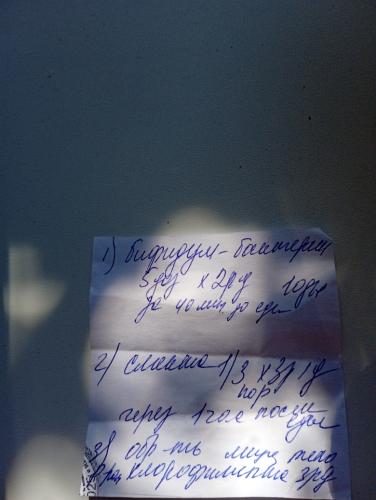 1) бифидум-бактерин
5 доз х 2р/д 10дн
за 40 мин до еды
2) смекта 1/3 х 3р/д
пор
через 1час после
еды
3) обр-ть
хлорофиллиптом 3р/д